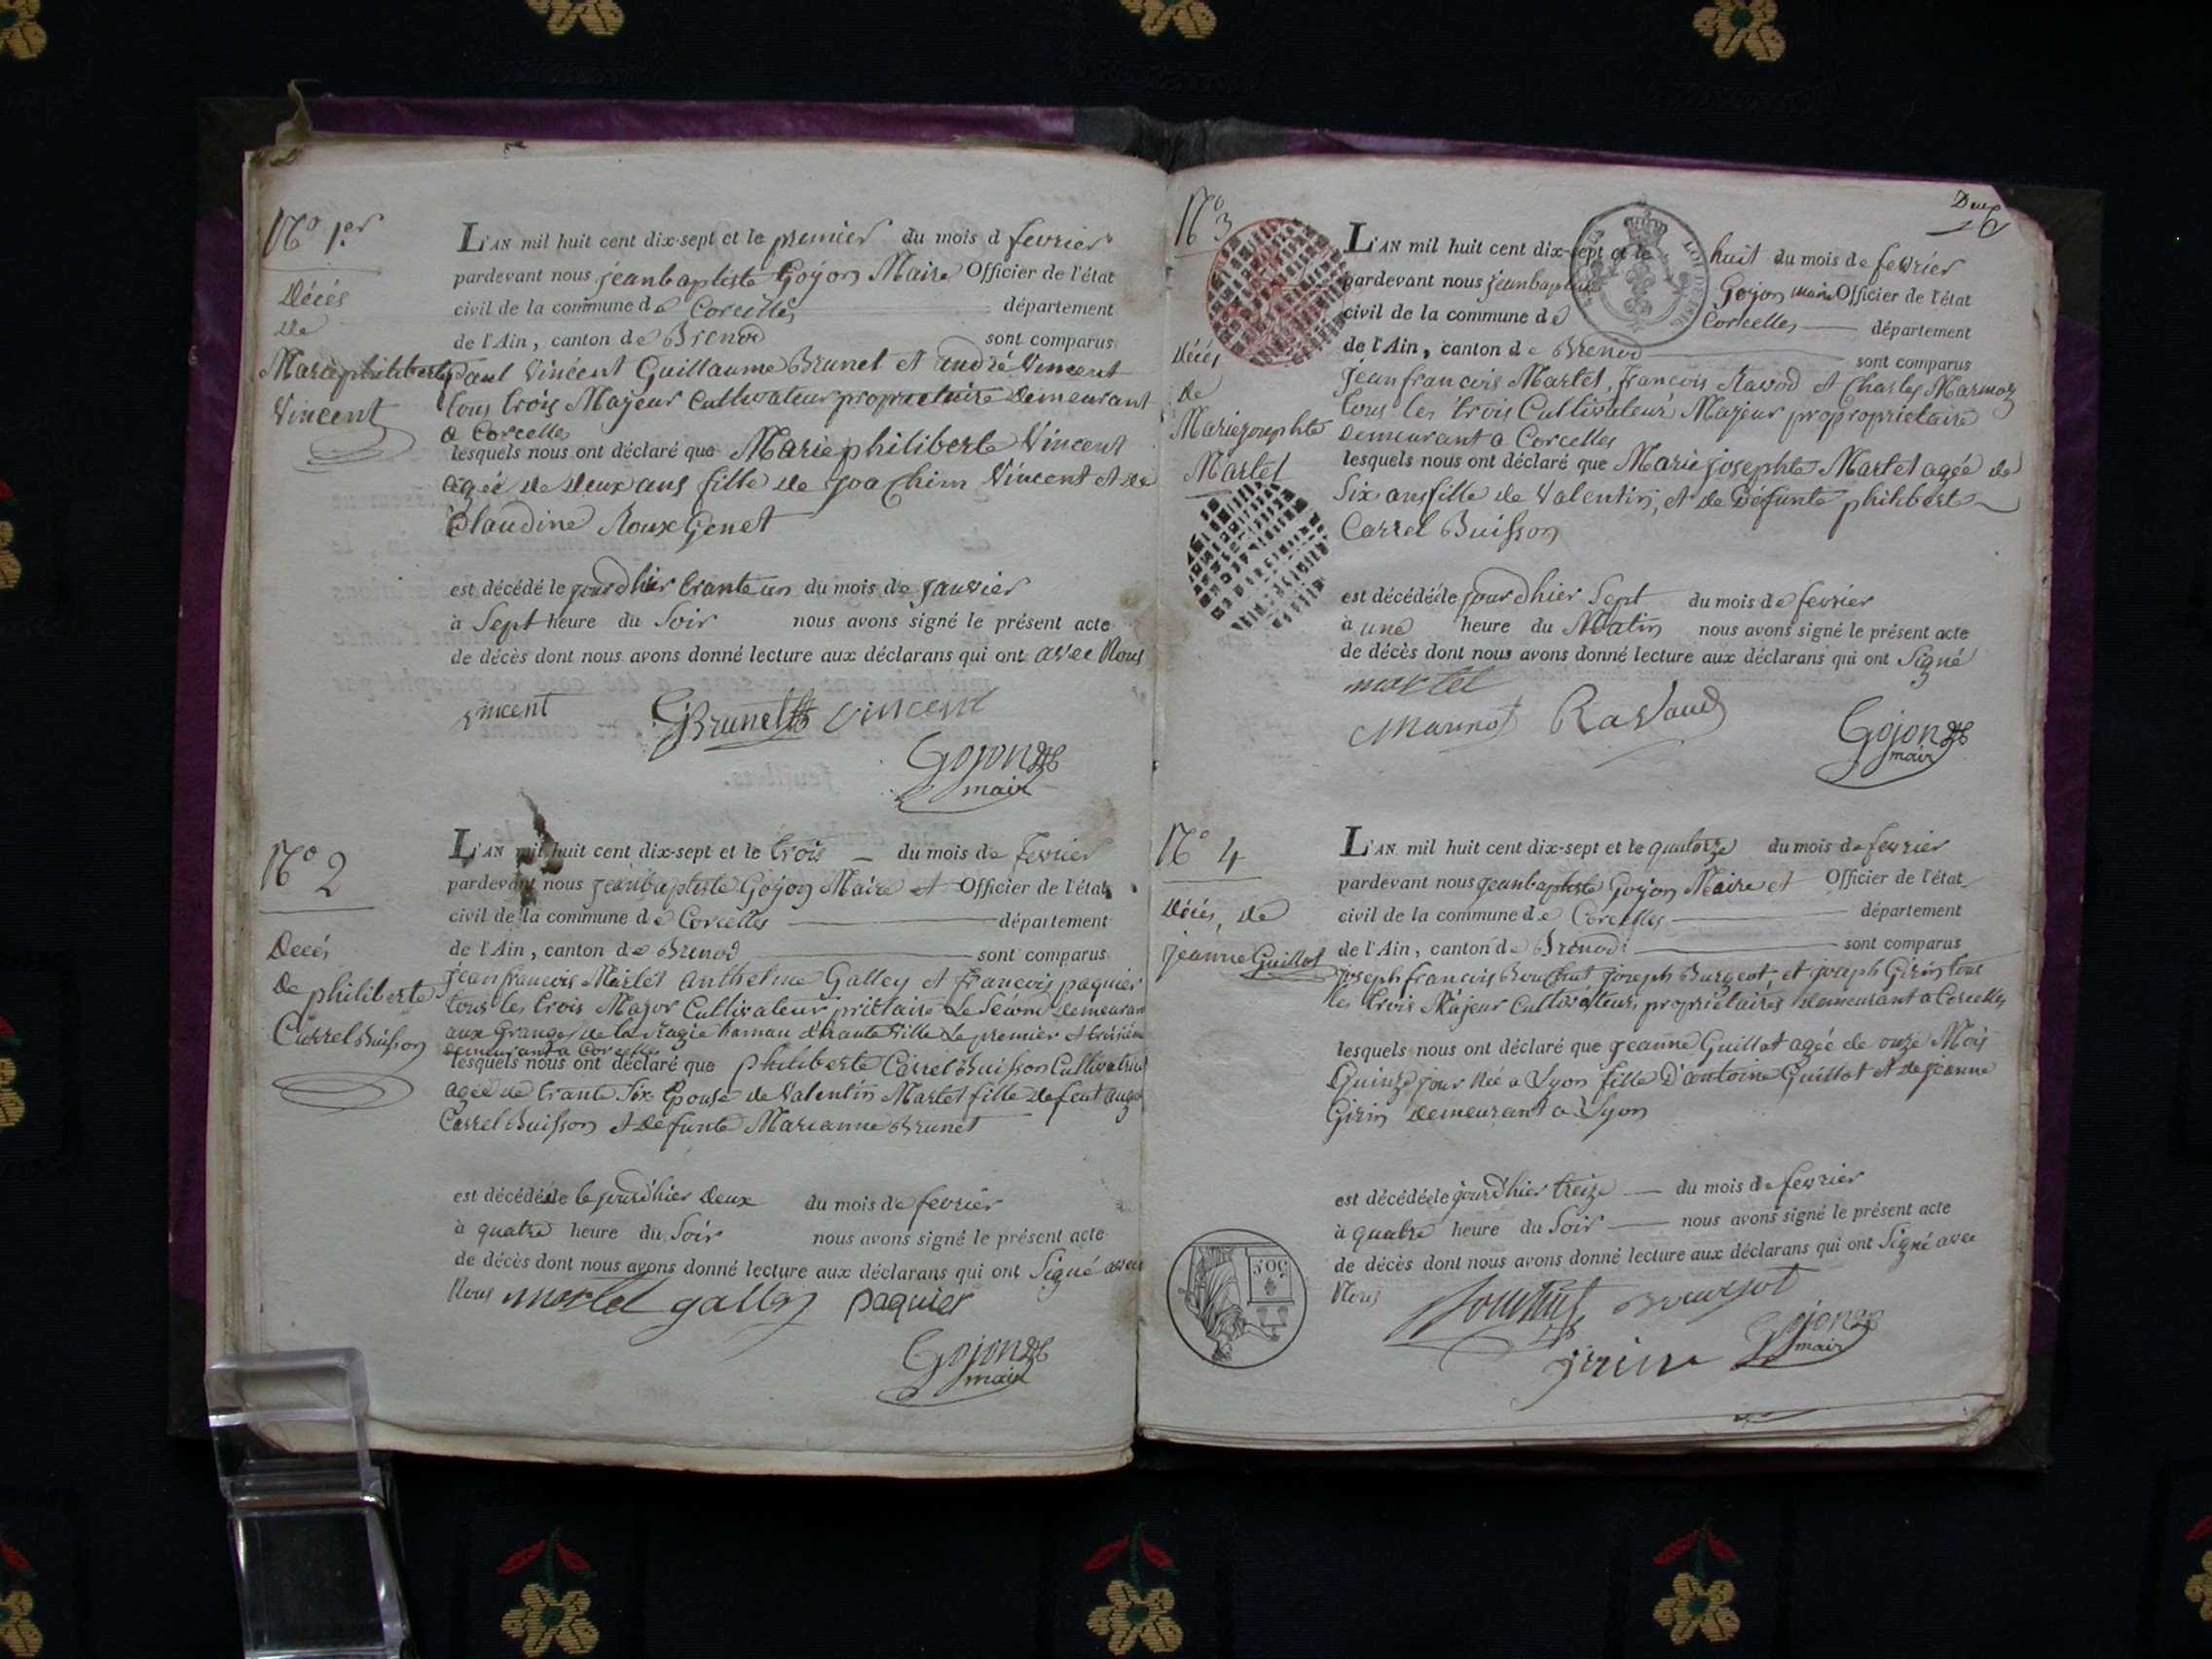 No 1.er
Décés
de
Mariephiliberte
Vincent
L'AN mil huit cent dix-sept et le premier du mois d fevrier
pardevant nous jeanbaptiste Gojon Maire Officier de l'état
civil de la commune de Corcelles département
de l'Ain, canton de Brenod sont comparus
paul Vincent Guillaume Brunet et andré Vincent
tous trois Majeur Cultivateur proprietaire demeurant
a Corcelles
lesquels nous ont déclaré que Marie philiberte Vincent
agée de deux ans fille de joachim Vincent et de
Claudine Roux Genet
est décédé le jourdhier trante un du mois de janvier
à Sept heure du Soir nous avons signé le présent acte
de décès dont nous avons donné lecture aux déclarans qui ont avec Nous
vincent Brunet vincent
Gojon
mair
No 2
Decés
de philiberte
Carrel Buisson
L'AN mil huit cent dix-sept et le trois du mois de fevrier
pardevant nous jeanbaptiste Gojon Maire et Officier de l'état
civil de la commune de Corcelles département
de l'Ain, canton de Brenod sont comparus
jeanfrancois Martel anthelme Galley et francois paquier
tous les trois Major Cultivateur prietaire Le Second demeurant
aux Granges de la Ragie hamau d'hauteville Le premier et troisieme
demeurant a Corcelles
lesquels nous ont déclaré que philiberte Carrel Buisson Cultivatrice
agée de trante Six Epouse de Valentin Martel fille de feut
Carrel Buisson et defunte Marianne Brunet
est décédée le jourdhier Deux du mois de fevrier
à quatre heure du Soir nous avons signé le présent acte
de décès dont nous avons donné lecture aux déclarans qui ont Signé avec
Nous martel galley paquier
Gojon
mair
Deux
No 3
Décés
de
Mariejosephte
Martel
L'AN mil huit cent dix-sept et le huit du mois de fevrier
pardevant nous jeanbaptiste Gojon Maire Officier de l'état
civil de la commune de Corcelles département
de l'Ain, canton de Brenod sont comparus
jeanfrancois Martel, francois Ravod et Charles Marmoz
tous les trois Cultivateur Majeur proproprietaire
demeurant a Corcelles
lesquels nous ont déclaré que Marie josephte Martel agée de
Six ans fille de Valentin, et de Défunte philiberte
Carrel Buisson
est décédée le jourdhier Sept du mois de fevrier
à une heure du Matin nous avons signé le présent acte
de décès dont nous avons donné lecture aux déclarans qui ont Signé
martel
Marmot Ravaud
Gojon
mair
No 4
Décés, de
jeanne Guillot
L'AN mil huit cent dix-sept et le quatorze du mois de fevrier
pardevant nous jeanbaptiste Gojon Maire et Officier de l'état
civil de la commune de Corcelles département
de l'Ain, canton de Brenod sont comparus
joseph francois Bouchut, joseph Burgeot, et joseph Girin tous
les trois Majeur Cultivateur proprietaires demeurant a Corcelles
lesquels nous ont déclaré que jeanne Guillot agée de onze Mois
Quinze jour Née a Lyon fille D'antoine Guillot et de jeanne
Girin demeurant a Lyon
est décédée le jourdhier treize du mois de fevrier
à quatre heure du Soir nous avons signé le présent acte
de décès dont nous avons donné lecture aux déclarans qui ont Signé avec
Nous Bouchut
Gojon
mair
50C